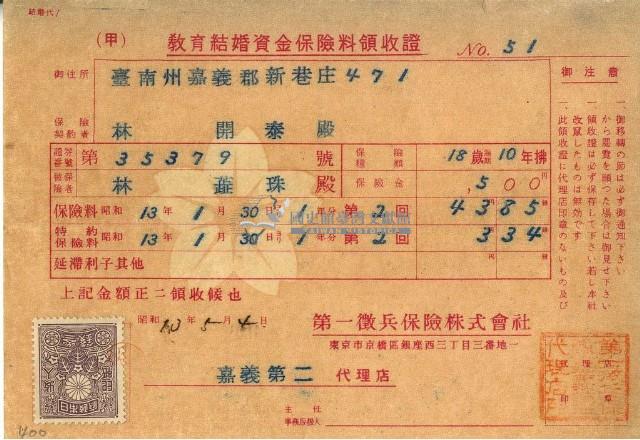 結婚代!
(甲) 教育結婚資金保險料領收證 No. 51
御住所 臺南州嘉義郡新巷庄471
保險契約者 林開泰殿
證券番號 第35379號 保險種類 18歲滿期10年拂
被保險者 林蕋珠殿 保險金 ,500
保險料 昭和13年1月30日ヨリ1年分 第2回 4385
特約保險料 昭和13年1月30日ヨリ1年分 第2回 334
延滯利子其他
上記金額正ニ領收候也
昭和 年5月4日
第一徵兵保險株式會社
東京市京橋區銀座西三丁目三番地一
嘉義第二 代理店
主任
事務取扱人
御注意
一、御移轉の節は必ず御通知下さい
一、領收證は必ず保存して下さい若し本社
改竄したものは無效です
一、此領收證に代理店印章のないもの及び
國史館臺灣文獻館
TAIWAN HISTORICA
400